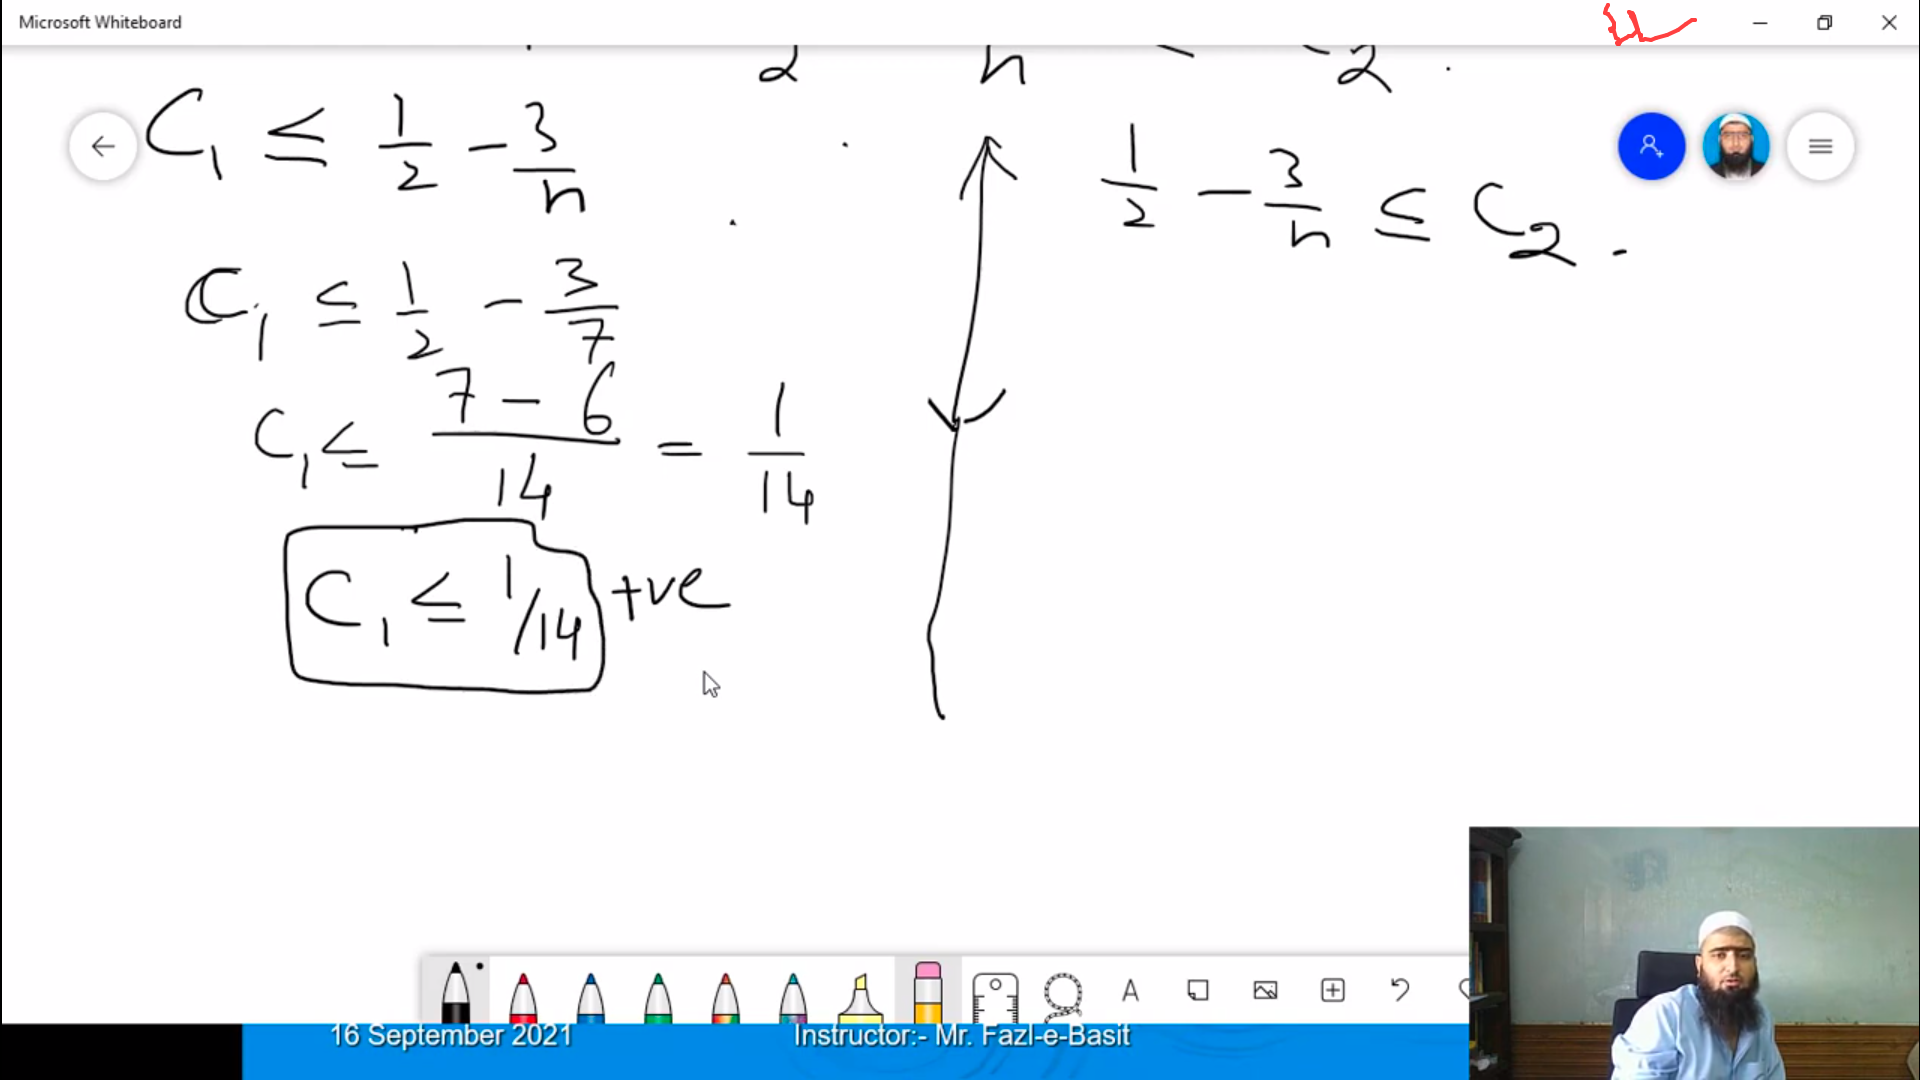 Microsoft Whiteboard
2 n 2 .
C₁ ≤ 1/2 - 3/n
1/2 - 3/n ≤ C₂ .
C₁ ≤ 1/2 - 3/7
C₁ ≤ 7 - 6/14 = 1/14
C₁ ≤ 1/14 +ve
16 September 2021
Instructor:- Mr. Fazl-e-Basit